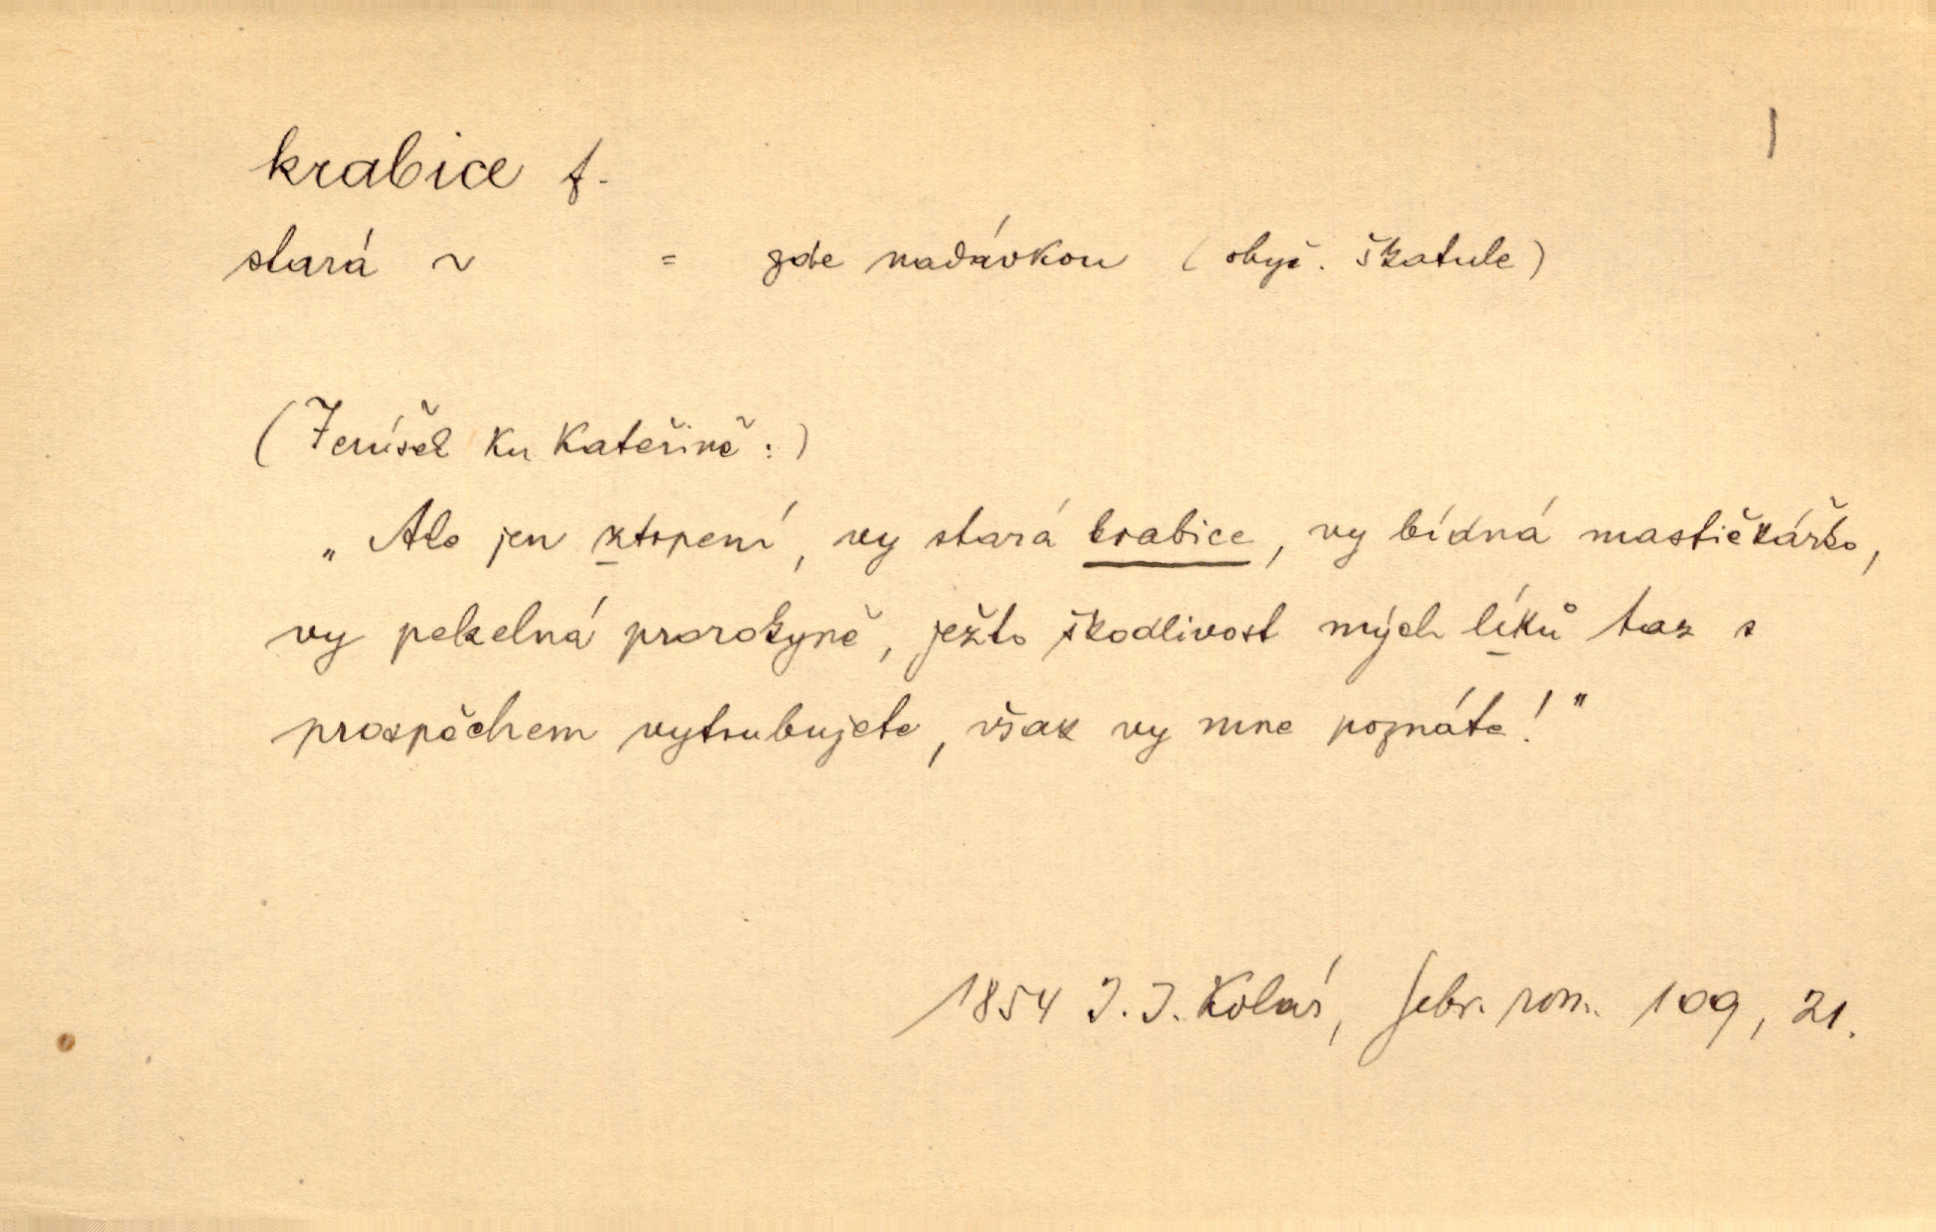 krabice f.
stará ~ = zde nadávkou (obyč. škatule)
(Jeníšek ku Kateřině:)
„Ale jen ztrpení, vy stará krabice, vy bídná mastičkářko,
vy pekelná prorokyně, ježto škodlivost mých léků tak s
prospěchem vytrubujete, však vy mne poznáte!"
1854 J. J. Kolár, Sebr. rom. 109, 21.